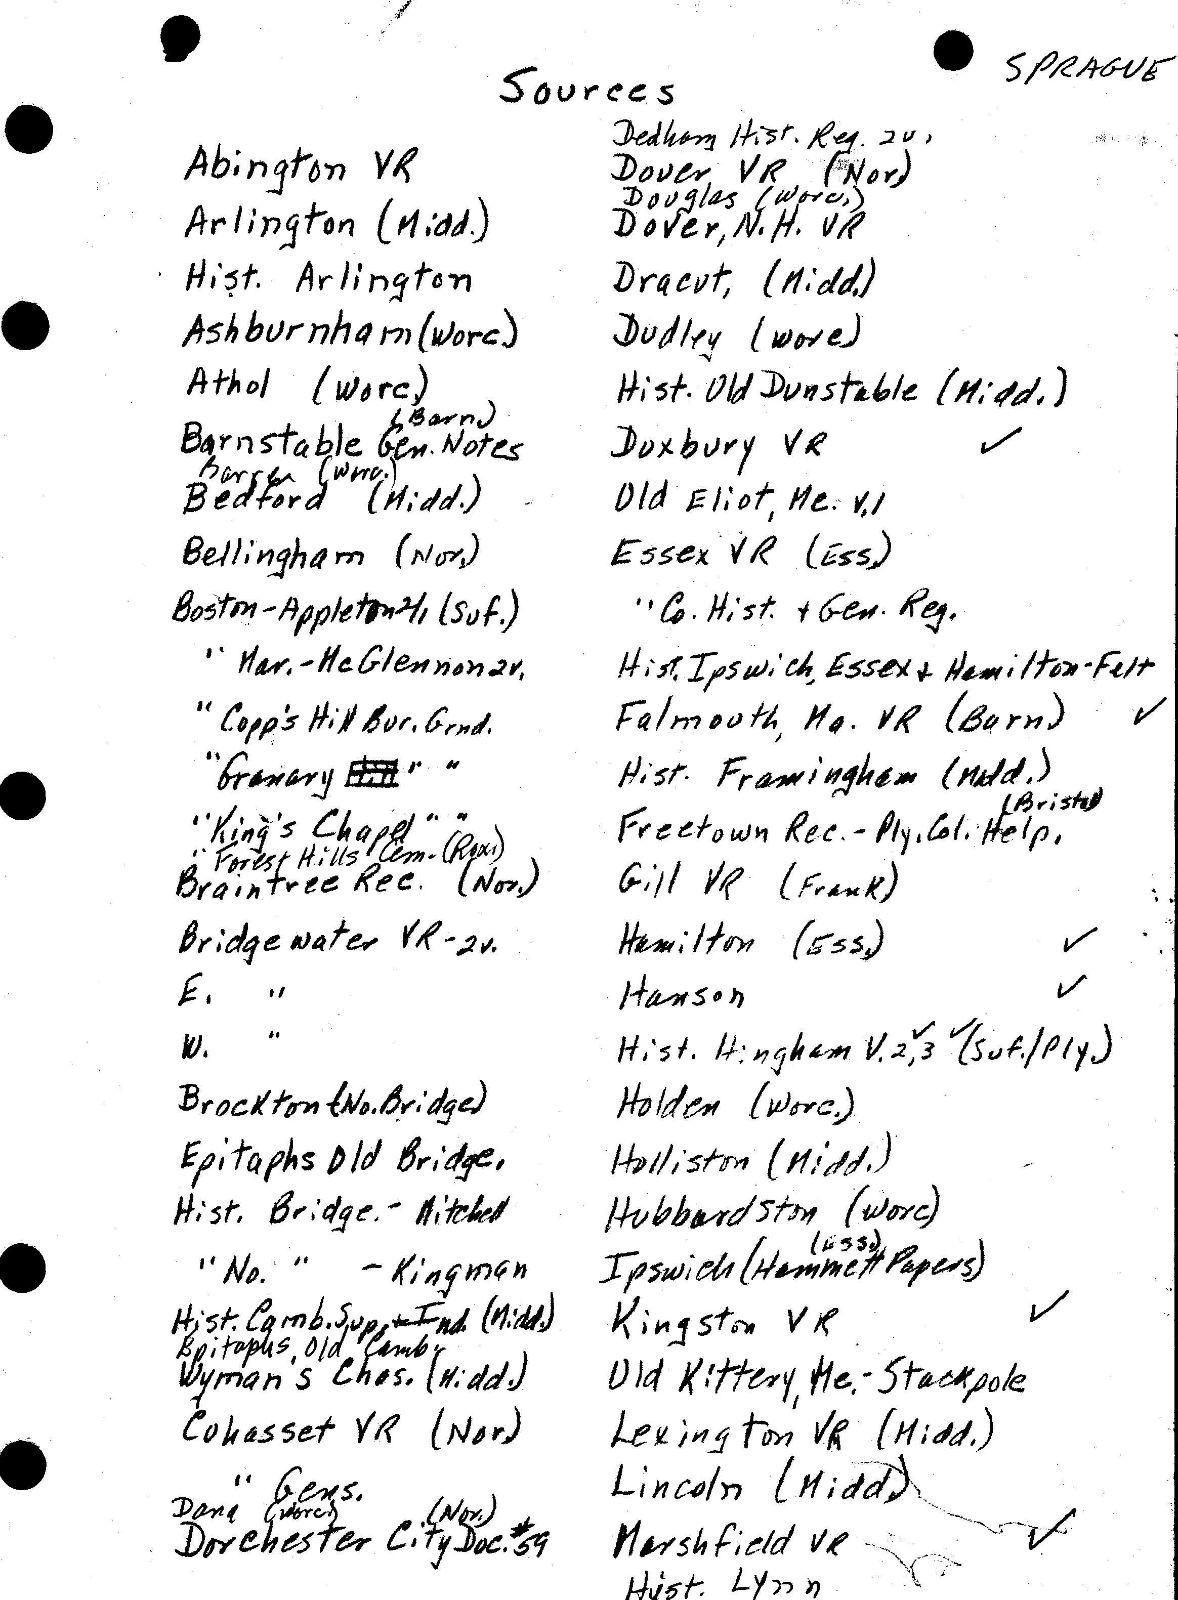 SPRAGUE
Sources
Abington VR
Arlington (Midd.)
Hist. Arlington
Ashburnham (Worc.)
Athol (Worc.)
(Barn.)
Barnstable Gen. Notes
Barre (Worc.)
Bedford (Midd.)
Bellingham (Nor.)
Boston-Appleton 2/1 (Suf.)
" Mar.-McGlennon 2v.
" Copp's Hill Bur. Grnd.
" Granary " "
" King's Chapel " "
" Forest Hills Cem-(Rox.)
Braintree Rec. (Nor.)
Bridgewater VR-2v.
E. "
W. "
Brockton (No. Bridge.)
Epitaphs Old Bridge.
Hist. Bridge.- Mitchell
" No. " - Kingman
Hist. Camb. Sup. + Ind. (Midd.)
Epitaphs, Old Camb.
Wyman's Chas. (Midd.)
Cohasset VR (Nor.)
" Gens.
Dana (Worc.) (Nor.)
Dorchester City Doc. #59
Dedham Hist. Reg. 2v.
Dover VR (Nor.)
Douglas (Worc.)
Dover, N.H. VR
Dracut, (Midd.)
Dudley (Worc)
Hist. Old Dunstable (Midd.)
Duxbury VR ✓
Old Eliot, Me. v.1
Essex VR (Ess.)
" Co. Hist. + Gen. Reg.
Hist. Ipswich, Essex + Hamilton-Felt
Falmouth, Ma. VR (Barn.) ✓
Hist. Framingham (Midd.)
(Bristol)
Freetown Rec.- Ply. Col. Help.
Gill VR (Frank)
Hamilton (Ess.) ✓
Hanson ✓
Hist. Hingham V. 2,✓ 3 ✓ (Suf./Ply.)
Holden (Worc.)
Holliston (Midd.)
Hubbardston (Worc)
(Ess.)
Ipswich (Hammett Papers)
Kingston VR ✓
Old Kittery, Me.- Stackpole
Lexington VR (Midd.)
Lincoln (Midd.)
Marshfield VR ✓
Hist. Lynn